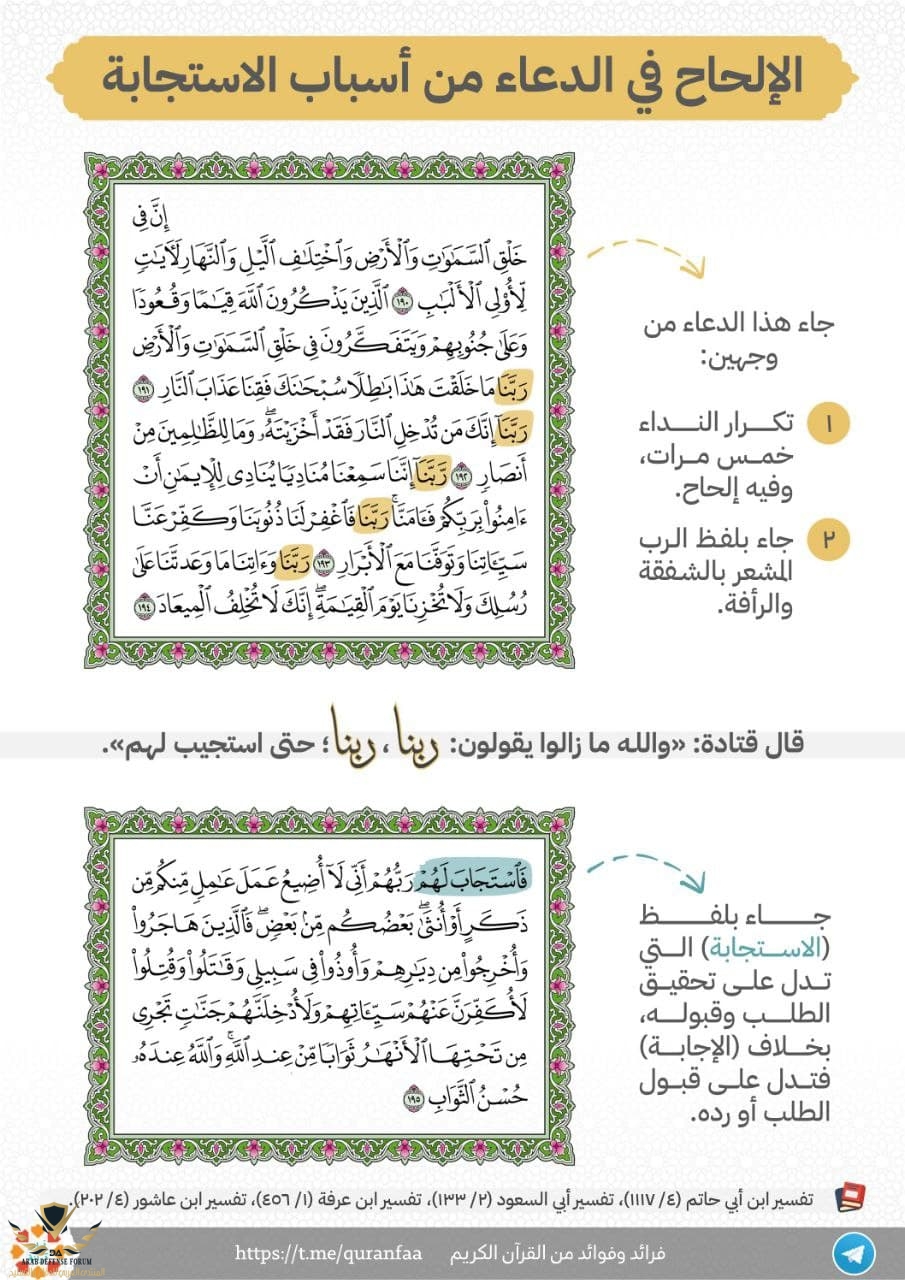 الإلحاح في الدعاء من أسباب الاستجابة
إِنَّ فِي
خَلْقِ ٱلسَّمَٰوَٰتِ وَٱلْأَرْضِ وَٱخْتِلَٰفِ ٱلَّيْلِ وَٱلنَّهَارِ لَأٓيَٰتٍ
لِّأُو۟لِى ٱلْأَلْبَٰبِ ١٩٠ ٱلَّذِينَ يَذْكُرُونَ ٱللَّهَ قِيَٰمًا وَقُعُودًا
وَعَلَىٰ جُنُوبِهِمْ وَيَتَفَكَّرُونَ فِى خَلْقِ ٱلسَّمَٰوَٰتِ وَٱلْأَرْضِ
رَبَّنَا مَا خَلَقْتَ هَٰذَا بَٰطِلًا سُبْحَٰنَكَ فَقِنَا عَذَابَ ٱلنَّارِ ١٩١
رَبَّنَآ إِنَّكَ مَن تُدْخِلِ ٱلنَّارَ فَقَدْ أَخْزَيْتَهُۥۖ وَمَا لِلظَّٰلِمِينَ مِنْ
أَنصَارٍ ١٩٢ رَّبَّنَآ إِنَّنَا سَمِعْنَا مُنَادِيًا يُنَادِى لِلْإِيمَٰنِ أَنْ
ءَامِنُوا۟ بِرَبِّكُمْ فَـَٔامَنَّاۚ رَبَّنَا فَٱغْفِرْ لَنَا ذُنُوبَنَا وَكَفِّرْ عَنَّا
سَيِّـَٔاتِنَا وَتَوَفَّنَا مَعَ ٱلْأَبْرَارِ ١٩٣ رَبَّنَا وَءَاتِنَا مَا وَعَدتَّنَا عَلَىٰ
رُسُلِكَ وَلَا تُخْزِنَا يَوْمَ ٱلْقِيَٰمَةِۖ إِنَّكَ لَا تُخْلِفُ ٱلْمِيعَادَ ١٩٤
جاء هذا الدعاء من
وجهين:
١ تكرار النداء
خمس مرات،
وفيه إلحاح.
٢ جاء بلفظ الرب
المشعر بالشفقة
والرأفة.
قال قتادة: «والله ما زالوا يقولون: ربنا، ربنا؛ حتى استجيب لهم».
فَٱسْتَجَابَ لَهُمْ رَبُّهُمْ أَنِّى لَآ أُضِيعُ عَمَلَ عَٰمِلٍ مِّنكُم مِّن
ذَكَرٍ أَوْ أُنثَىٰۖ بَعْضُكُم مِّنۢ بَعْضٍۖ فَٱلَّذِينَ هَاجَرُوا۟
وَأُخْرِجُوا۟ مِن دِيَٰرِهِمْ وَأُوذُوا۟ فِى سَبِيلِى وَقَٰتَلُوا۟ وَقُتِلُوا۟
لَأُكَفِّرَنَّ عَنْهُمْ سَيِّـَٔاتِهِمْ وَلَأُدْخِلَنَّهُمْ جَنَّٰتٍ تَجْرِى
مِن تَحْتِهَا ٱلْأَنْهَٰرُ ثَوَابًا مِّنْ عِندِ ٱللَّهِۚ وَٱللَّهُ عِندَهُۥ
حُسْنُ ٱلثَّوَابِ ١٩٥
جاء بلفظ
(الاستجابة) التي
تدل على تحقيق
الطلب وقبوله،
بخلاف (الإجابة)
فتدل على قبول
الطلب أو رده.
تفسير ابن أبي حاتم (٤/ ١١١٧)، تفسير أبي السعود (٢/ ١٣٣)، تفسير ابن عرفة (١/ ٤٥٦)، تفسير ابن عاشور (٤/ ٢٠٢).
فرائد وفوائد من القرآن الكريم https://t.me/quranfaa
DA
ARAB DEFENSE FORUM